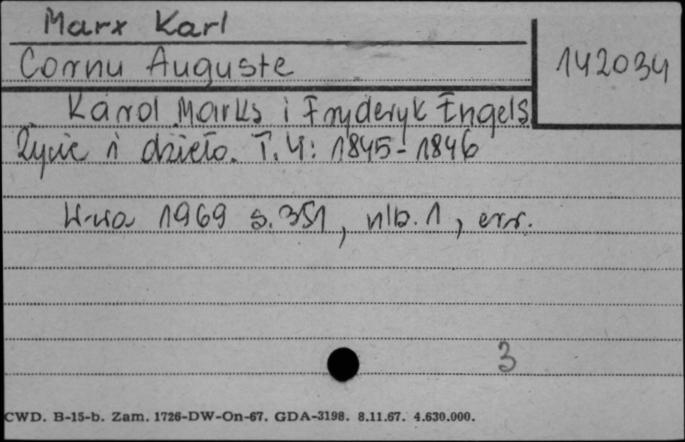 Marx Karl
Cornu Auguste
142034
Karol Marks i Fryderyk Engels
Życie i dzieło. T. 4: 1845-1846
W-wa 1969 s. 351, nlb. 1, err.
3
CWD. B-15-b. Zam. 1726-DW-On-67. GDA-3198. 8.11.67. 4.630.000.